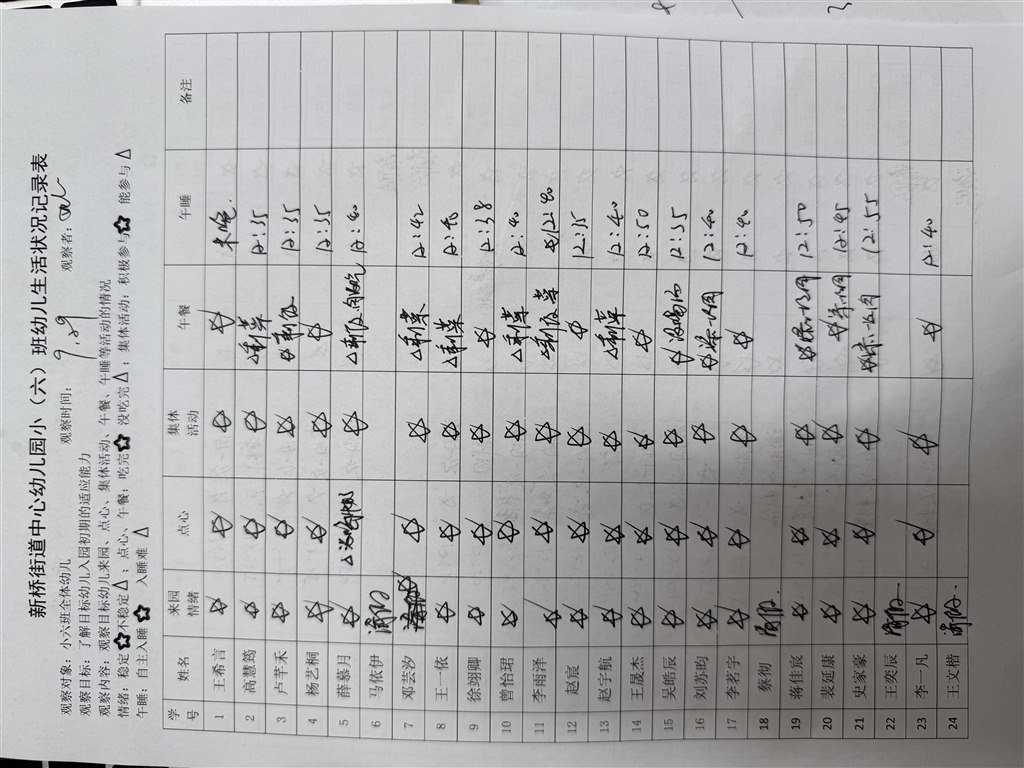 新桥街道中心幼儿园小（六）班幼儿生活状况记录表
观察对象：小六班全体幼儿 观察时间： 9.29 观察者：
观察目标：了解目标幼儿入园初期的适应能力
观察内容：观察目标幼儿来园、点心、集体活动、午餐、午睡等活动的情况
情绪：稳定☆不稳定△；点心、午餐：吃完☆ 没吃完△；集体活动：积极参与☆ 能参与△
午睡：自主入睡☆ 入睡难 △
学号 姓名 来园情绪 点心 集体活动 午餐 午睡 备注
1 王希言 ☆ ☆ ☆ ☆ 未睡
2 高慧筠 ☆ ☆ ☆ △剩菜 12:35
3 卢芊禾 ☆ ☆ ☆ 12:35
4 杨艺桐 ☆ ☆ ☆ ☆ 12:35
5 薛慕月 ☆ △ ☆ △ 12:40
6 马依伊
7 邓芸汐 ☆ ☆ △剩菜 12:42
8 王一依 ☆ ☆ ☆ △剩菜 12:40
9 徐翊卿 ☆ ☆ ☆ ☆ 12:38
10 曾怡珺 ☆ ☆ ☆ △剩菜 12:40
11 李雨泽 ☆ ☆ ☆ 12:40
12 赵宸 ☆ ☆ ☆ ☆ 12:35
13 赵宇航 ☆ ☆ ☆ △剩菜 12:40
14 王晟杰 ☆ ☆ ☆ ☆ 12:50
15 吴皓辰 ☆ ☆ ☆ ☆ 12:55
16 刘苏昀 ☆ ☆ ☆ ☆添一次肉 12:40
17 李茗宇 ☆ ☆ ☆ ☆ 12:40
18 蔡彻
19 蒋佳宸 ☆ ☆ ☆ ☆ 12:50
20 裴延康 ☆ ☆ ☆ ☆ 12:45
21 史家豪 ☆ ☆ ☆ ☆ 12:55
22 王奕辰
23 李一凡 ☆ ☆ ☆ ☆ 12:40
24 王文楷